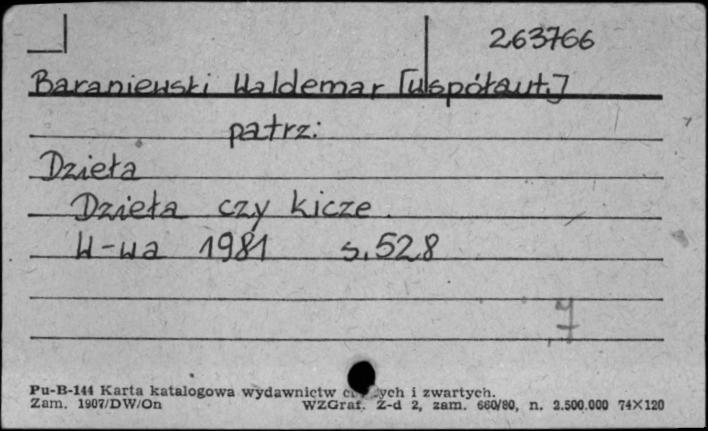 263766
Baraniewski Waldemar [współaut.]
patrz:
Dzieła
Dzieła czy kicze.
W-wa 1981 s. 528
7
Pu-B-144 Karta katalogowa wydawnictw i zwartych.
Zam. 1907/DW/On WZGraf. Z-d 2, zam. 660/80, n. 2.500.000 74×120